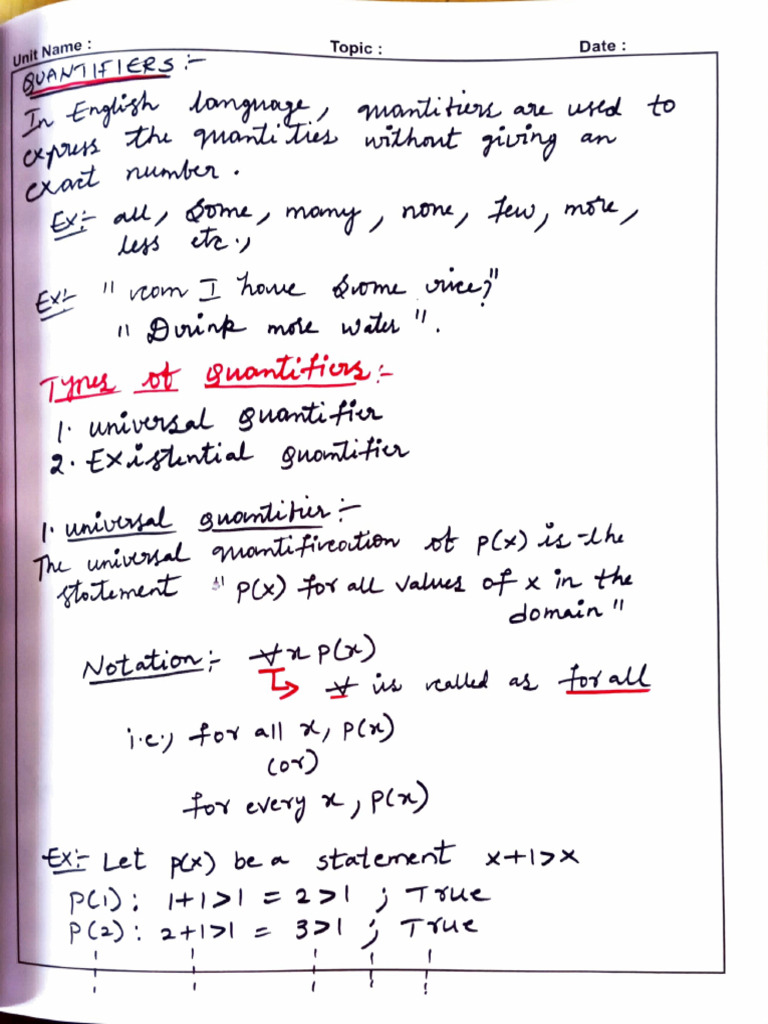 Unit Name : Topic : Date :
QUANTIFIERS :-
In English language, quantifiers are used to
express the quantities without giving an
exact number.
Ex:- all, some, many, none, few, more,
less etc.,
Ex:- " can I have some rice?"
" Drink more water ".
Types of Quantifiers:-
1. universal quantifier
2. Existential quantifier
1. universal quantifier:-
The universal quantification of P(x) is the
statement " P(x) for all values of x in the
domain "
Notation:- ∀x P(x)
↳ ∀ is called as for all
i.e., for all x, P(x)
(or)
for every x, P(x)
Ex:- Let P(x) be a statement x+1>x
P(1): 1+1>1 = 2>1 ; True
P(2): 2+1>1 = 3>1 ; True